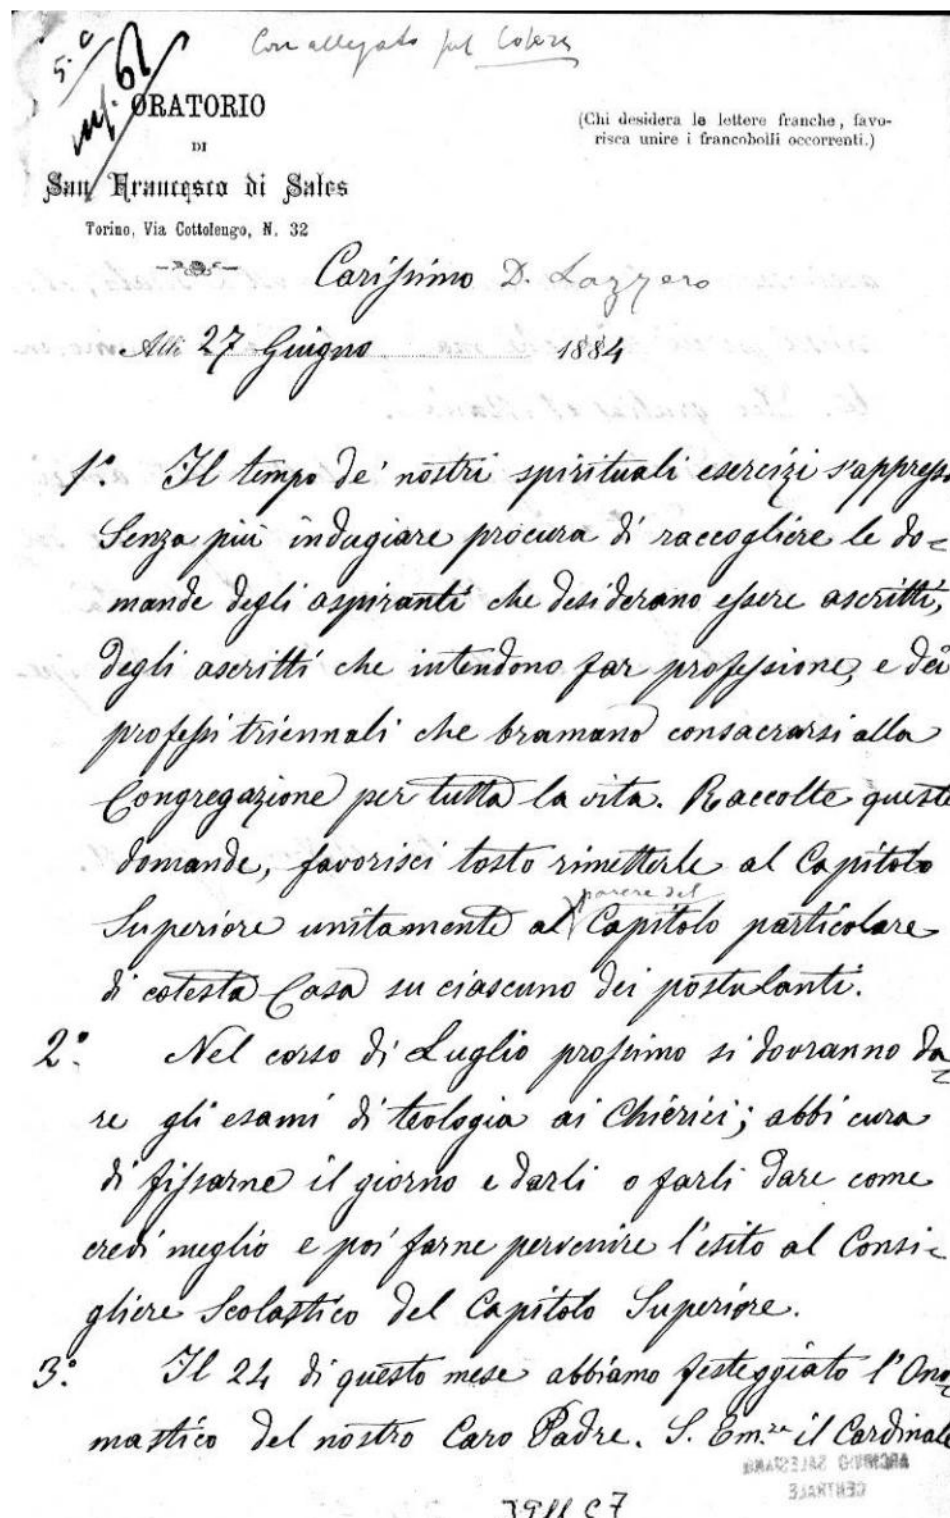 Con allegato sul Colera
5.º
ORATORIO
DI
San Francesco di Sales
Torino, Via Cottolengo, N. 32
(Chi desidera le lettere franche, favo-
risca unire i francobolli occorrenti.)
Carissimo D. Lazzero
Alli 27 Giugno 1884
1.º Il tempo de' nostri spirituali esercizi s'appress
Senza più indugiare procura di raccogliere le do=
mande degli aspiranti che desiderano essere ascritti,
degli ascritti che intendono far professione, e dei
professi triennali che bramano consacrarsi alla
Congregazione per tutta la vita. Raccolte queste
domande, favorisci tosto rimetterle al Capitolo
parere del
Superiore unitamente al Capitolo particolare
di cotesta Casa su ciascuno dei postulanti.
2.º Nel corso di Luglio prossimo si dovranno da=
re gli esami di teologia ai Chierici; abbi cura
di fissarne il giorno e darli o farli dare come
credi meglio e poi farne pervenire l'esito al Consi=
gliere Scolastico del Capitolo Superiore.
3.º Il 24 di questo mese abbiamo festeggiato l'Ono=
mastico del nostro Caro Padre. S. Em.za il Cardinale
ARCHIVIO SALESIANO
CENTRALE